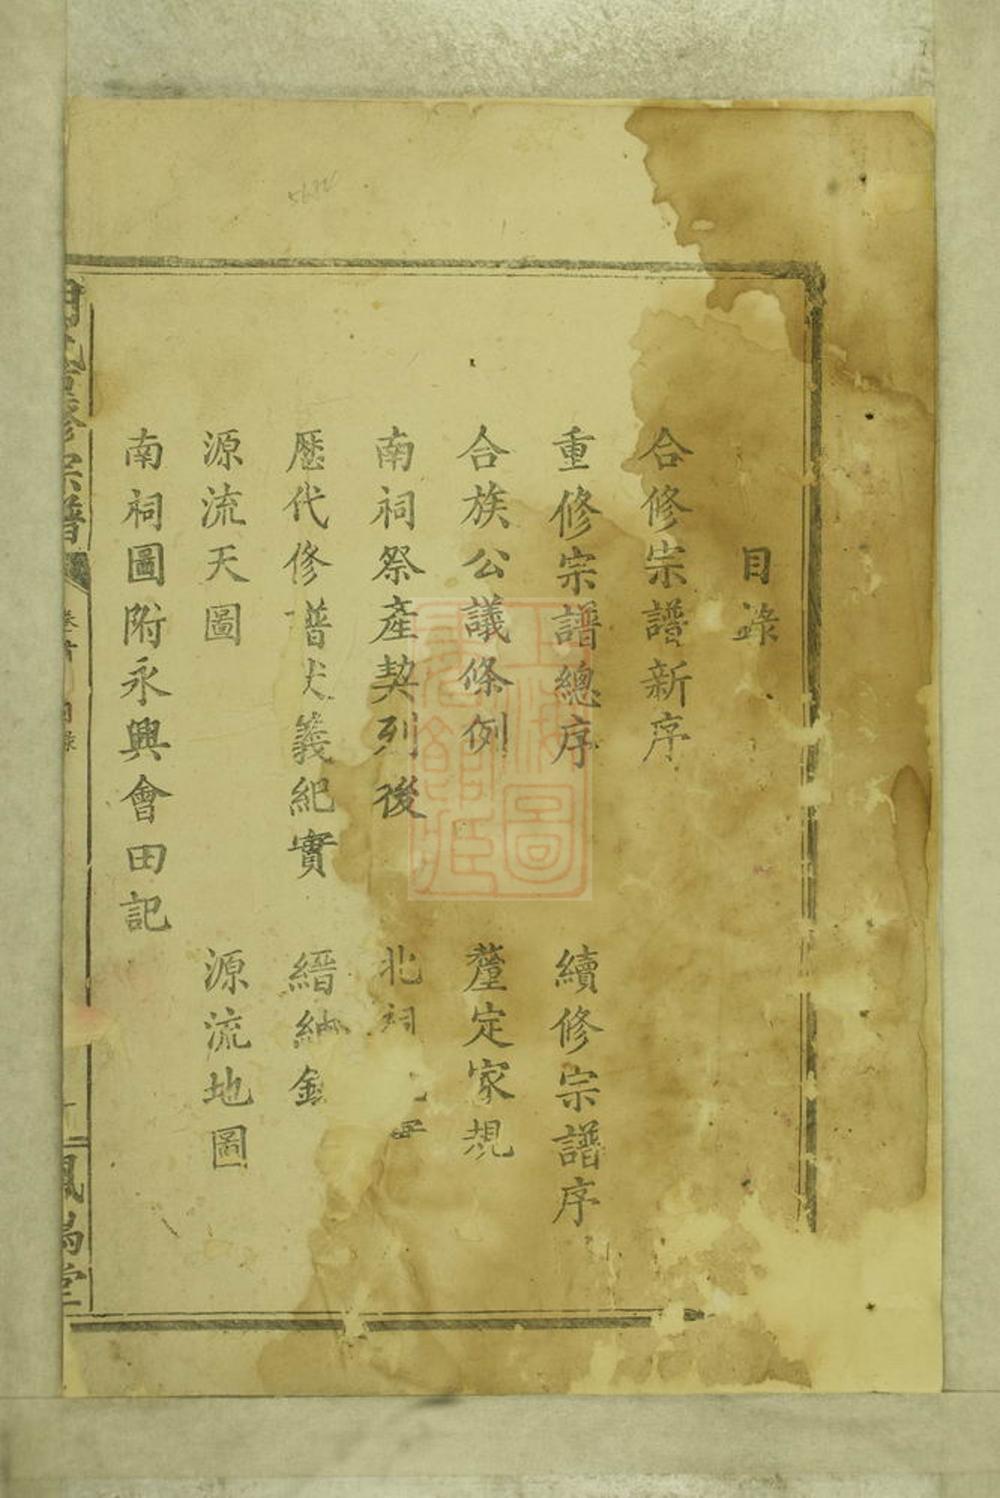 目錄
合修宗譜新序
重修宗譜總序 續修宗譜序
合族公議條例 釐定家規
南祠祭產契列後 北祠
歷代修譜 義紀實 縉紳錄
源流天圖 源流地圖
南祠圖附永興會田記
修宗譜
卷首 目錄
一
堂